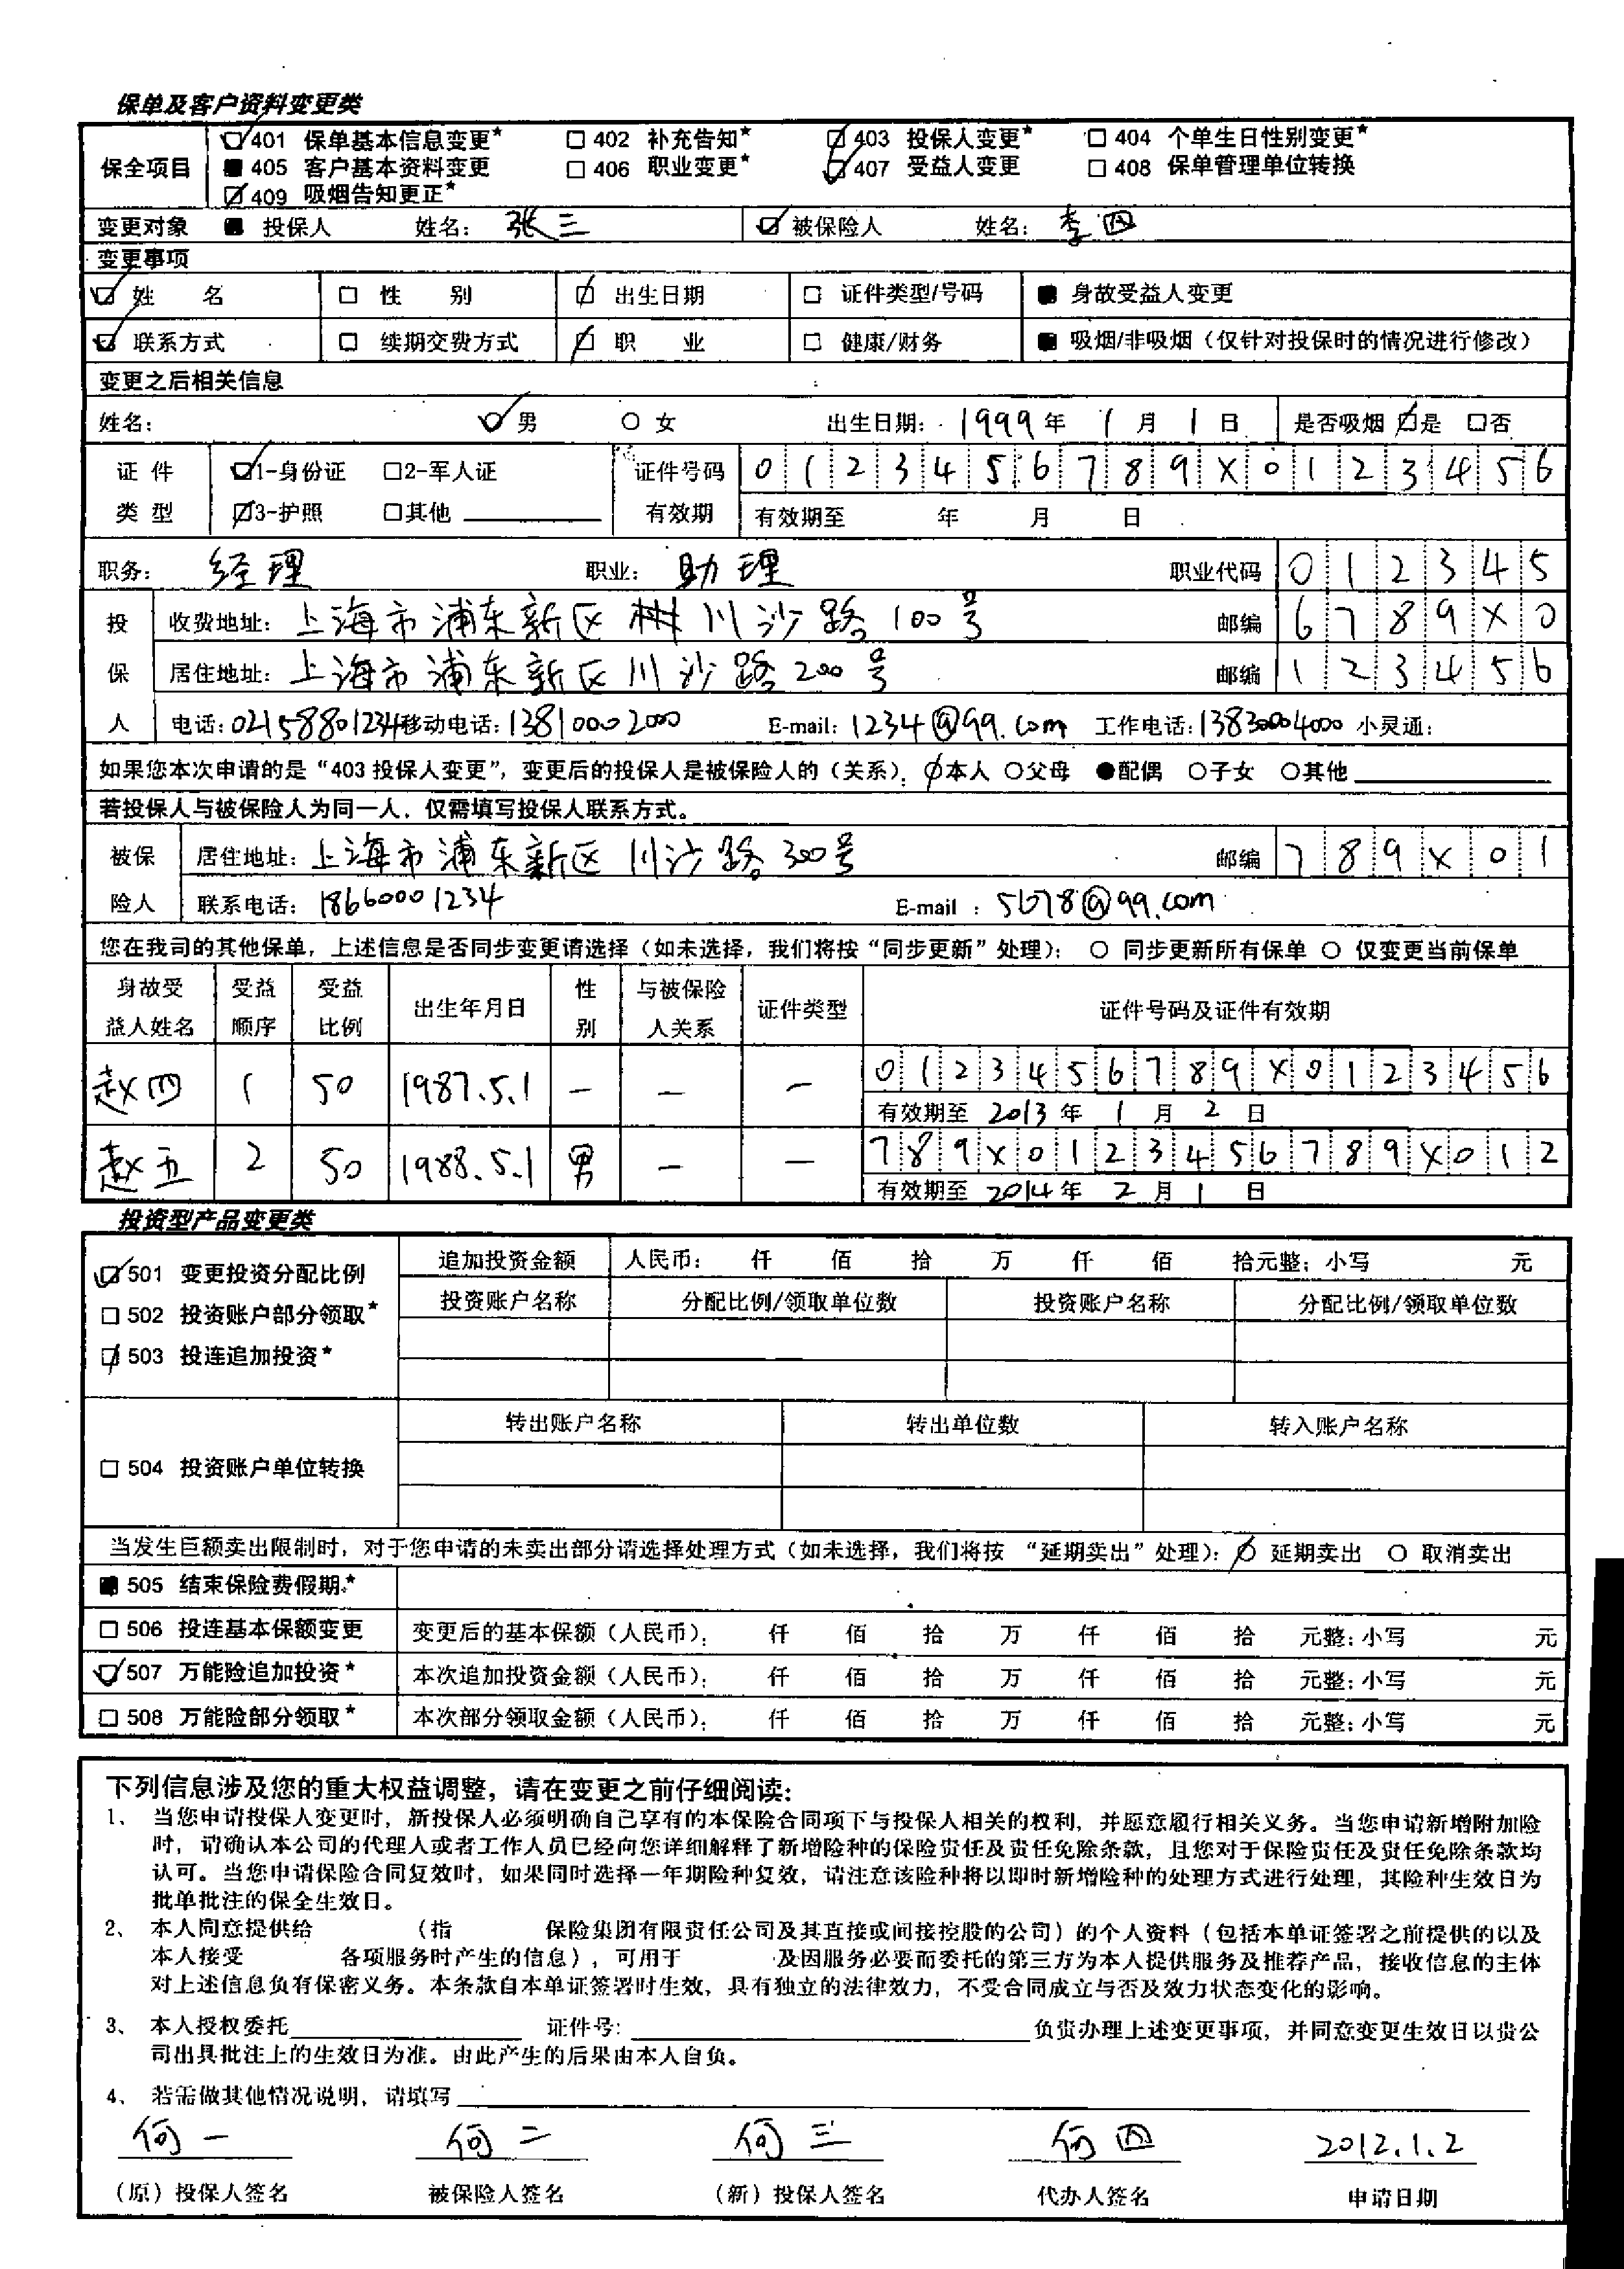 保单及客户资料变更类
保全项目 ☑401 保单基本信息变更* □402 补充告知* ☑403 投保人变更* □404 个单生日性别变更*
■405 客户基本资料变更 □406 职业变更* ☑407 受益人变更 □408 保单管理单位转换
☑409 吸烟告知更正*
变更对象 ■ 投保人 姓名: 张三 ☑ 被保险人 姓名: 李四
变更事项
☑ 姓 名 □ 性 别 ☑ 出生日期 □ 证件类型/号码 ■ 身故受益人变更
☑ 联系方式 □ 续期交费方式 ☑ 职 业 □ 健康/财务 ■ 吸烟/非吸烟（仅针对投保时的情况进行修改）
变更之后相关信息
姓名: ☑ 男 ○ 女 出生日期: 1999 年 1 月 1 日 是否吸烟 ☑是 □否
证 件 ☑1-身份证 □2-军人证 证件号码 0123456789X0123456
类 型 ☑3-护照 □其他 有效期 有效期至 年 月 日
职务: 经理 职业: 助理 职业代码 012345
投 收费地址: 上海市浦东新区 川沙路100号 邮编 6789X0
保 居住地址: 上海市浦东新区川沙路200号 邮编 123456
人 电话: 02158801234 移动电话: 13810002000 E-mail: 1234@qq.com 工作电话: 13830004000 小灵通:
如果您本次申请的是“403 投保人变更”，变更后的投保人是被保险人的（关系）: ☑本人 ○父母 ●配偶 ○子女 ○其他
若投保人与被保险人为同一人，仅需填写投保人联系方式。
被保 居住地址: 上海市浦东新区川沙路300号 邮编 789X01
险人 联系电话: 18660001234 E-mail : 5678@qq.com
您在我司的其他保单，上述信息是否同步变更请选择（如未选择，我们将按“同步更新”处理）: ○ 同步更新所有保单 ○ 仅变更当前保单
身故受益人姓名 受益顺序 受益比例 出生年月日 性别 与被保险人关系 证件类型 证件号码及证件有效期
赵四 1 50 1987.5.1 — — — 0123456789X0123456
有效期至 2013 年 1 月 2 日
赵五 2 50 1988.5.1 男 — — 789X0123456789X012
有效期至 2014 年 2 月 1 日
投资型产品变更类
☑501 变更投资分配比例 追加投资金额 人民币: 仟 佰 拾 万 仟 佰 拾元整; 小写 元
□502 投资账户部分领取* 投资账户名称 分配比例/领取单位数 投资账户名称 分配比例/领取单位数
☑503 投连追加投资*
转出账户名称 转出单位数 转入账户名称
□504 投资账户单位转换
当发生巨额卖出限制时，对于您申请的未卖出部分请选择处理方式（如未选择，我们将按 “延期卖出”处理）: ☑ 延期卖出 ○ 取消卖出
■505 结束保险费假期*
□506 投连基本保额变更 变更后的基本保额（人民币）: 仟 佰 拾 万 仟 佰 拾 元整; 小写 元
☑507 万能险追加投资* 本次追加投资金额（人民币）: 仟 佰 拾 万 仟 佰 拾 元整; 小写 元
□508 万能险部分领取* 本次部分领取金额（人民币）: 仟 佰 拾 万 仟 佰 拾 元整; 小写 元
下列信息涉及您的重大权益调整，请在变更之前仔细阅读:
1、 当您申请投保人变更时，新投保人必须明确自己享有的本保险合同项下与投保人相关的权利，并愿意履行相关义务。当您申请新增附加险
时，请确认本公司的代理人或者工作人员已经向您详细解释了新增险种的保险责任及责任免除条款，且您对于保险责任及责任免除条款均
认可。当您申请保险合同复效时，如果同时选择一年期险种复效，请注意该险种将以即时新增险种的处理方式进行处理，其险种生效日为
批单批注的保全生效日。
2、 本人同意提供给 （指 保险集团有限责任公司及其直接或间接控股的公司）的个人资料（包括本单证签署之前提供的以及
本人接受 各项服务时产生的信息），可用于 及因服务必要而委托的第三方为本人提供服务及推荐产品，接收信息的主体
对上述信息负有保密义务。本条款自本单证签署时生效，具有独立的法律效力，不受合同成立与否及效力状态变化的影响。
3、 本人授权委托 证件号: 负责办理上述变更事项，并同意变更生效日以贵公
司出具批注上的生效日为准。由此产生的后果由本人自负。
4、 若需做其他情况说明，请填写
何一 何二 何三 何四 2012.1.2
（原）投保人签名 被保险人签名 （新）投保人签名 代办人签名 申请日期